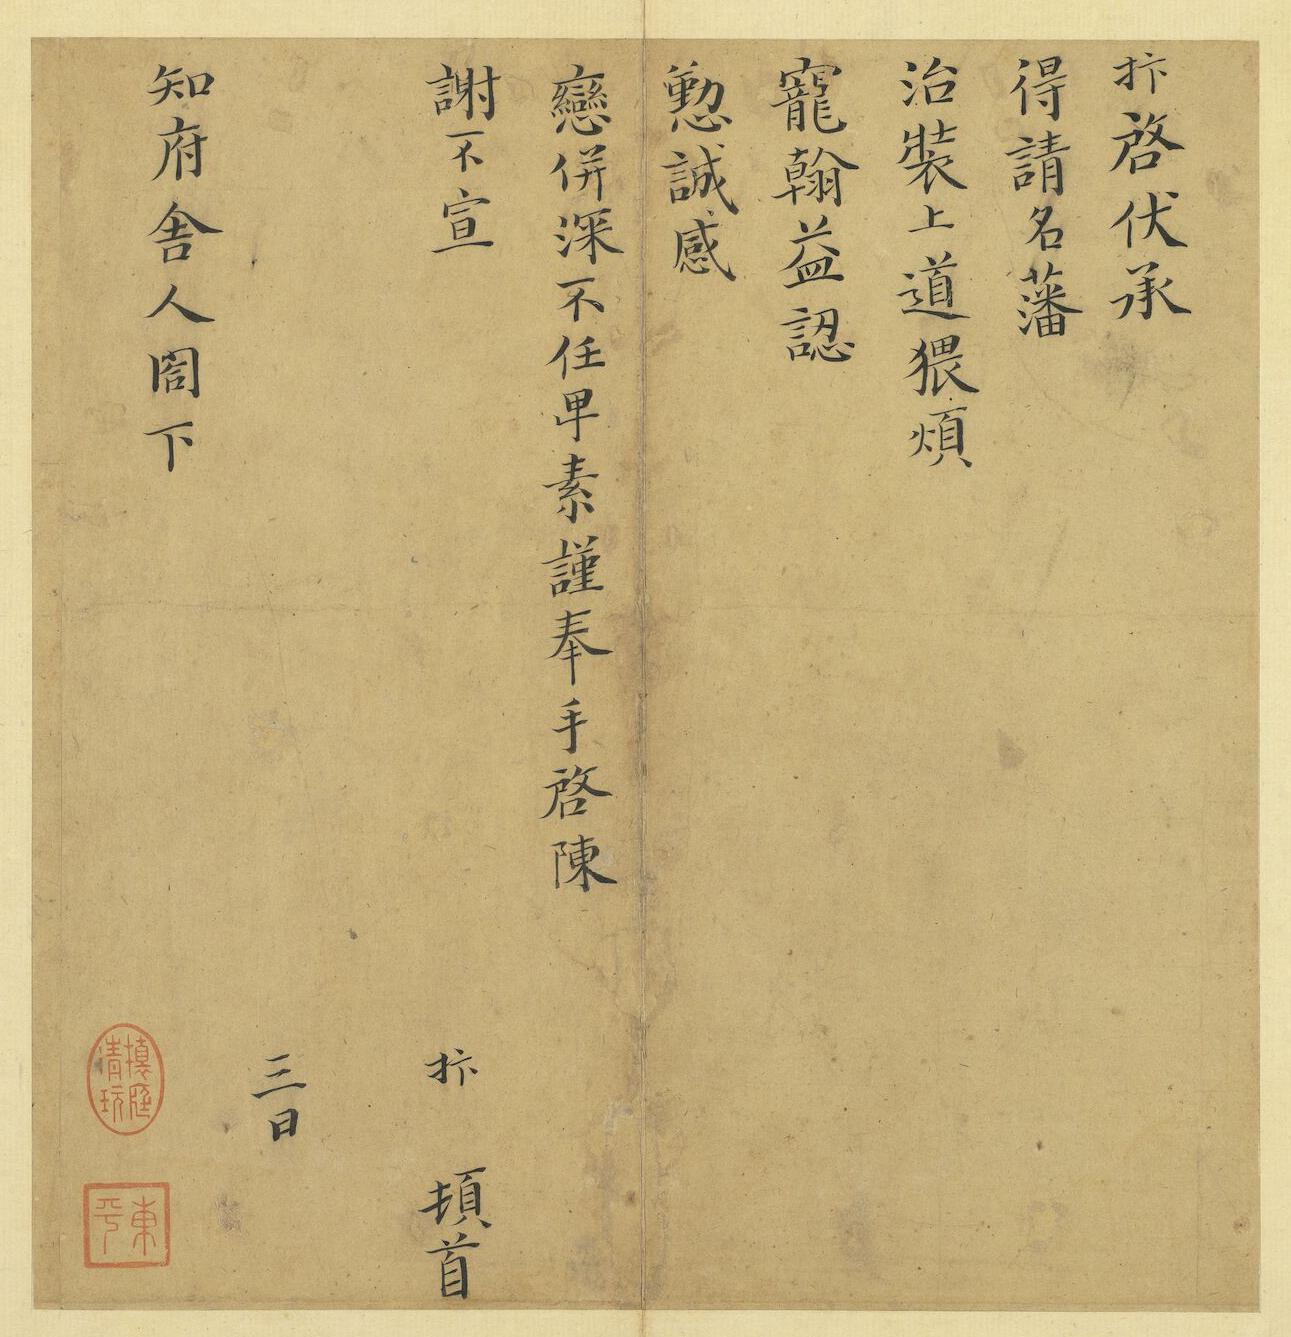 抃啓伏承
得請名藩
治裝上道猥煩
寵翰益認
懃誠感
戀併深不任卑素謹奉手啓陳
謝不宣
抃 頓首
三日
知府舍人閤下
槙庭清玩
東平